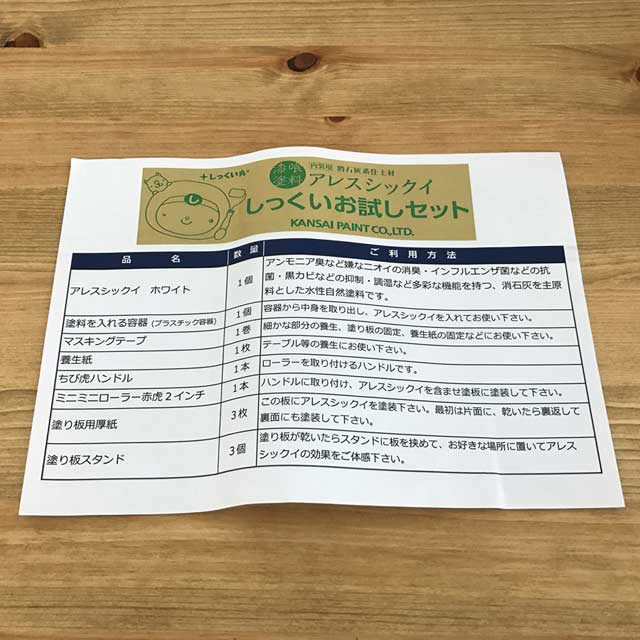 +しっくい丸
し
漆喰
塗料
内装用 消石灰系仕上材
アレスシックイ
しっくいお試しセット
KANSAI PAINT CO.,LTD.
品 名 数量 ご利用方法
アレスシックイ ホワイト 1個 アンモニア臭など嫌なニオイの消臭・インフルエンザ菌などの抗
菌・黒カビなどの抑制・調湿など多彩な機能を持つ、消石灰を主原
料とした水性自然塗料です。
塗料を入れる容器 (プラスチック容器) 1個 容器から中身を取り出し、アレスシックイを入れてお使い下さい。
マスキングテープ 1巻 細かな部分の養生、塗り板の固定、養生紙の固定などにお使い下さい。
養生紙 1枚 テーブル等の養生にお使い下さい。
ちび虎ハンドル 1本 ローラーを取り付けるハンドルです。
ミニミニローラー赤虎2インチ 1本 ハンドルに取り付け、アレスシックイを含ませ塗板に塗装して下さい。
塗り板用厚紙 3枚 この板にアレスシックイを塗装下さい。最初は片面に、乾いたら裏返して
裏面にも塗装して下さい。
塗り板スタンド 3個 塗り板が乾いたらスタンドに板を挟めて、お好きな場所に置いてアレス
シックイの効果をご体感下さい。